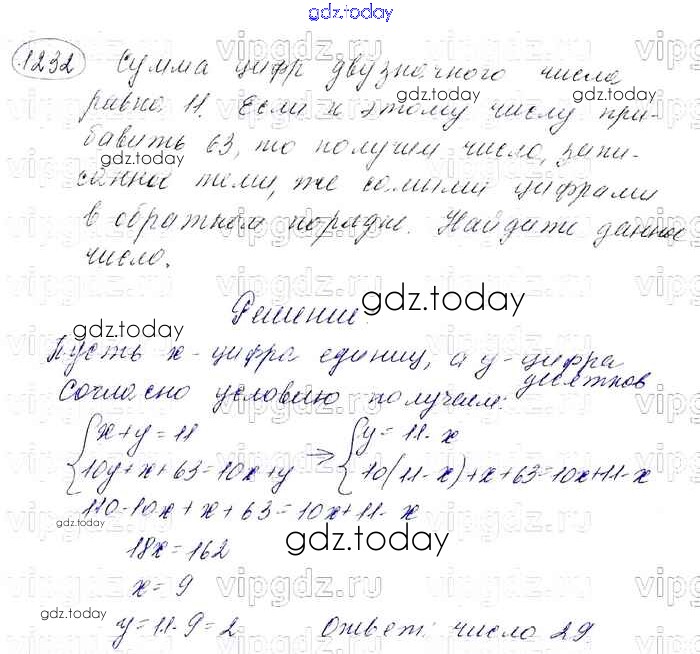 gdz.today
1232 Сумма цифр двузначного числа
равна 11. Если к этому числу при-
бавить 63, то получим число, запи-
санное теми же самыми цифрами
в обратном порядке. Найдите данное
число.
Решение.
Пусть x - цифра единиц, а y - цифра
десятков
Согласно условию получаем:
{x+y=11 → {y=11-x
{10y+x+63=10x+y {10(11-x)+x+63=10x+11-x
110-10x+x+63=10x+11-x
18x=162
x=9
y=11-9=2 Ответ: число 29
gdz.today
gdz.today
gdz.today
gdz.today
gdz.today
gdz.today
gdz.today
gdz.today
gdz.today
vipgdz.ru